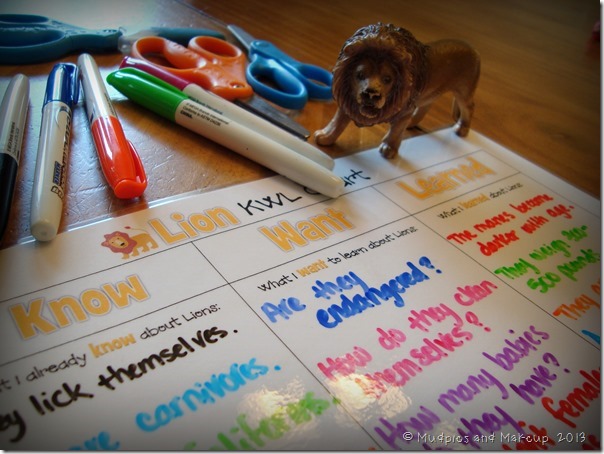 Lion KWL Chart
Know
Want
Learned
t I already know about Lions:
ey lick themselves.
are carnivores.
What I want to learn about Lions:
Are they
endangered?
How do they clean
themselves?
How many babies
they have?
What I learned about Lions:
The manes become
darter with age.
They weigh
500 pounds
They
females
© Mudpies and Makeup 2013